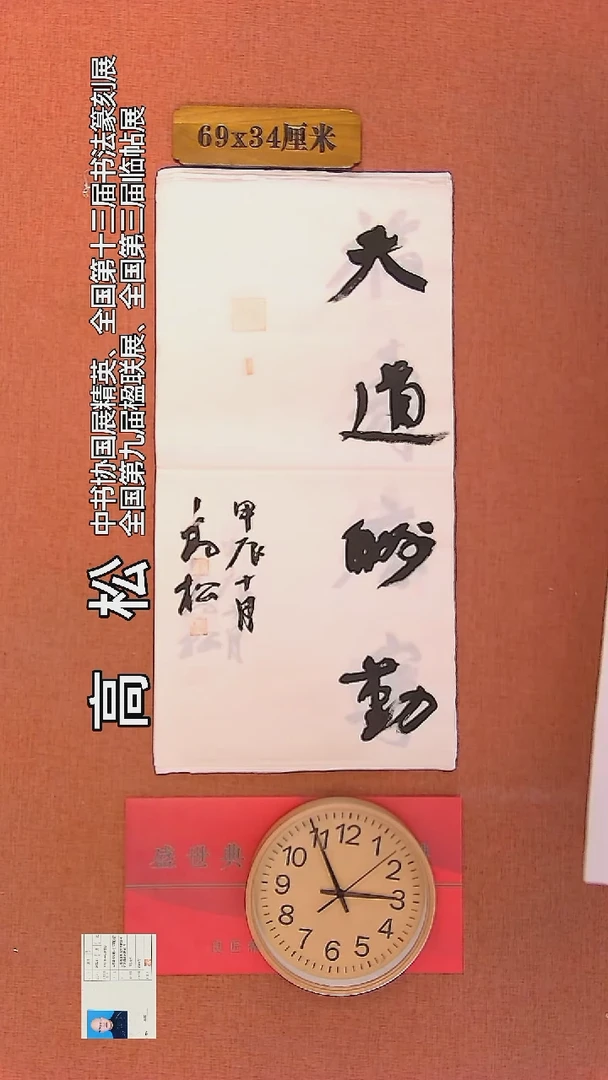 69x34厘米
天道酬勤
甲辰十月
高松
高 松
中书协国展精英、全国第十三届书法篆刻展
全国第九届楹联展、全国第三届临帖展
盛世典
12
1
2
3
4
5
6
7
8
9
10
11